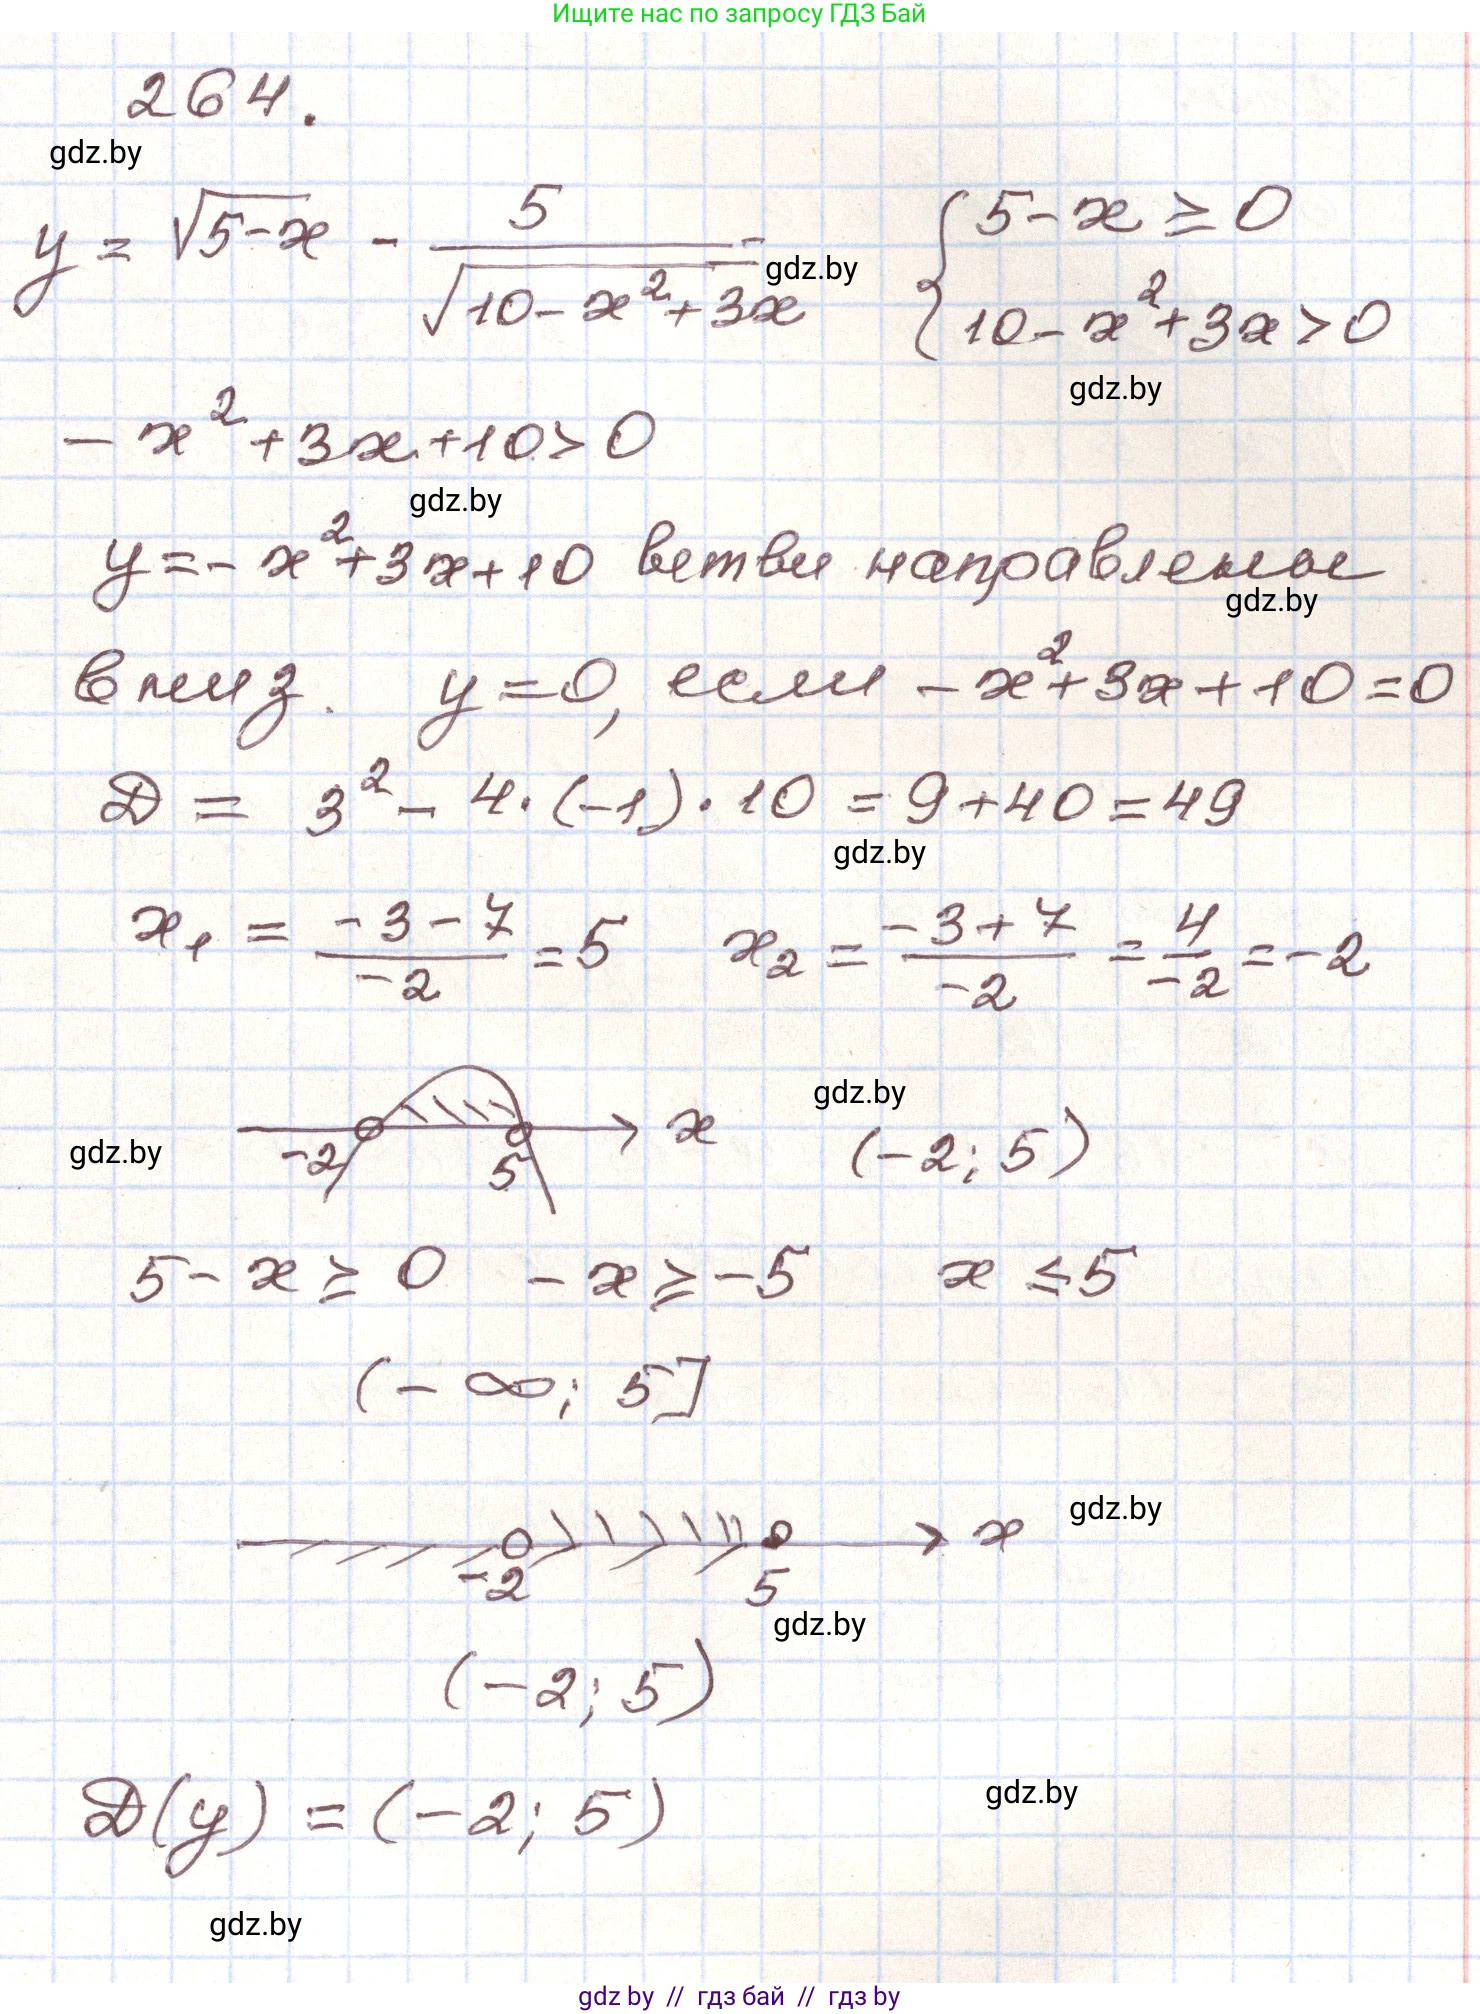 Ищите нас по запросу ГДЗ Бай
264.
gdz.by
y = √(5-x) - 5/√(10-x²+3x) gdz.by { 5-x ≥ 0
10-x²+3x > 0
gdz.by
-x²+3x+10>0
gdz.by
y=-x²+3x+10 ветви направлены
gdz.by
вниз. y=0, если -x²+3x+10=0
D = 3² - 4·(-1)·10 = 9+40=49
gdz.by
x₁ = (-3-7)/(-2) = 5 x₂ = (-3+7)/(-2) = 4/(-2) = -2
gdz.by
x
gdz.by
-2 5 (-2; 5)
5-x ≥ 0 -x ≥ -5 x ≤ 5
(-∞; 5]
gdz.by
x
-2 5
gdz.by
(-2; 5)
D(y) = (-2; 5)
gdz.by
gdz.by
gdz by // гдз бай // гдз by